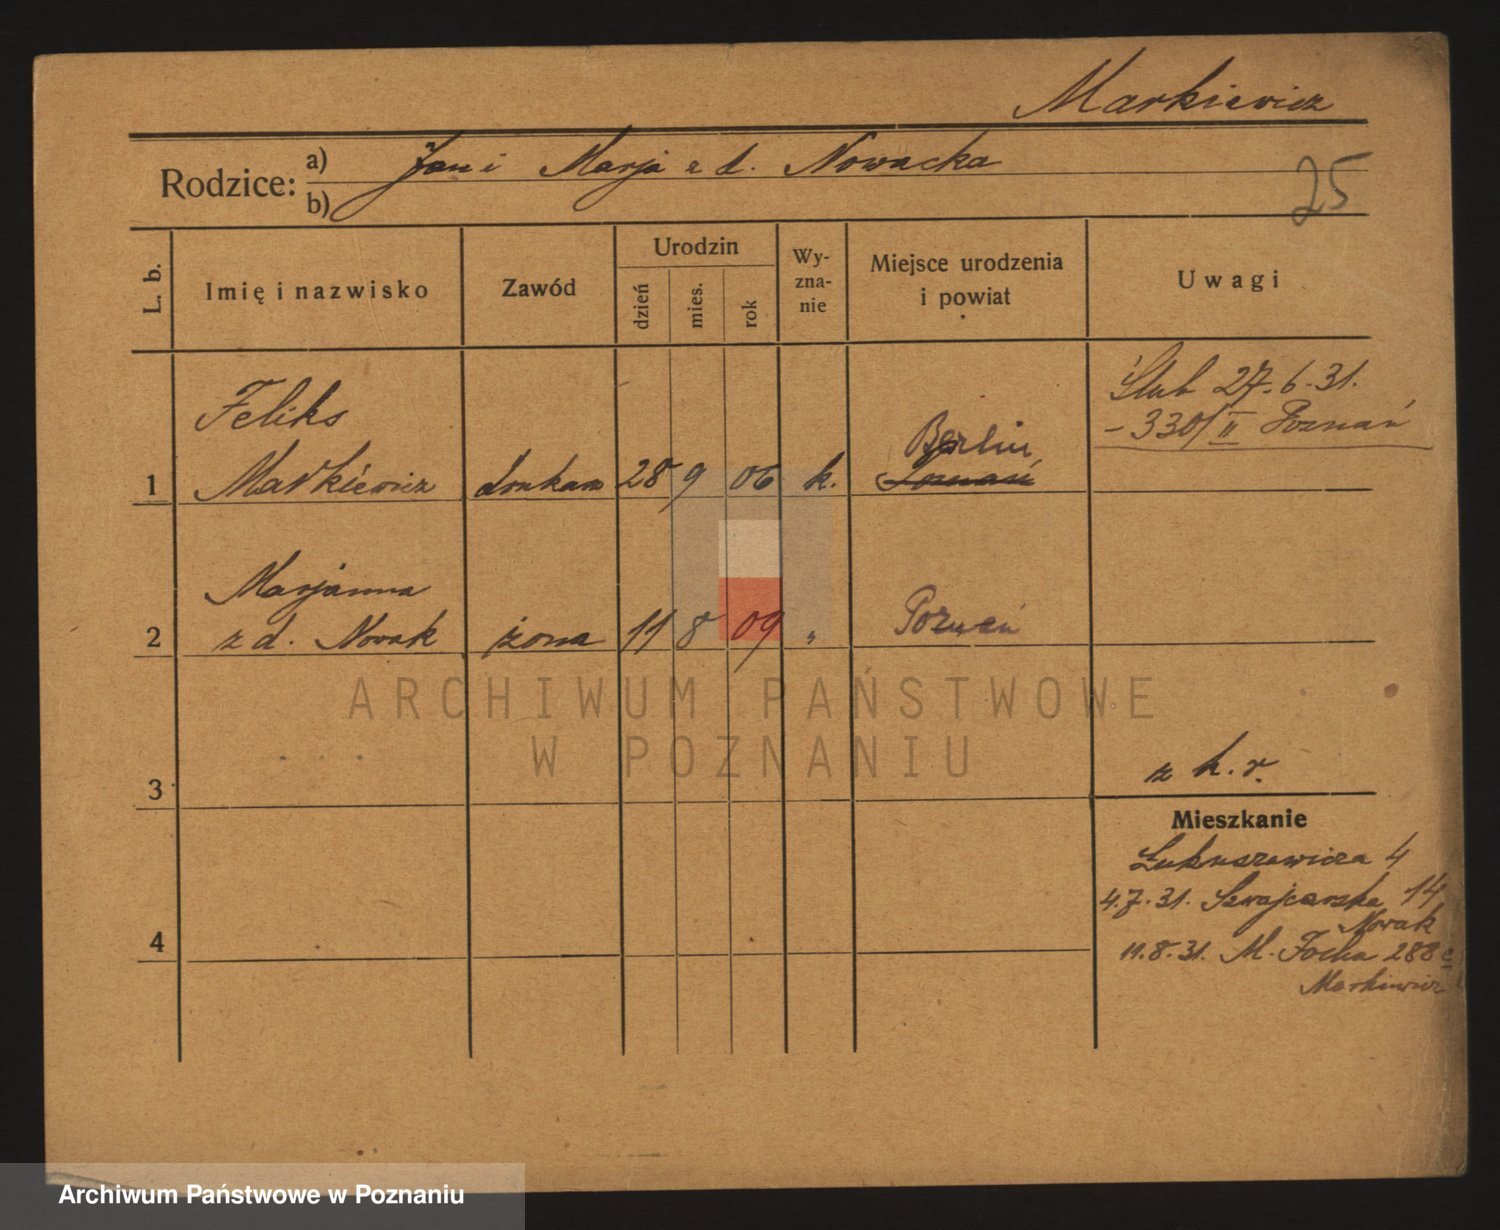 Markiewicz
Rodzice:
a) Jan i Marja z d. Nowacka
b)
25
L. b.
Imię i nazwisko
Zawód
Urodzin
dzień
mies.
rok
Wy-
zna-
nie
Miejsce urodzenia
i powiat
Uwagi
Feliks
1 Markiewicz drukarz 28 9 06 k. Berlin
Poznań
Ślub 27.6.31.
- 330/II Poznań
Marjanna
2 z d. Nowak żona 11 8 09 " Poznań
3
z k. r.
Mieszkanie
Łukaszewicza 4
4.7.31. Szwajcarska 14
Nowak
4
11.8.31. M. Focha 288 c
Markiewicz
ARCHIWUM PAŃSTWOWE
W POZNANIU
Archiwum Państwowe w Poznaniu